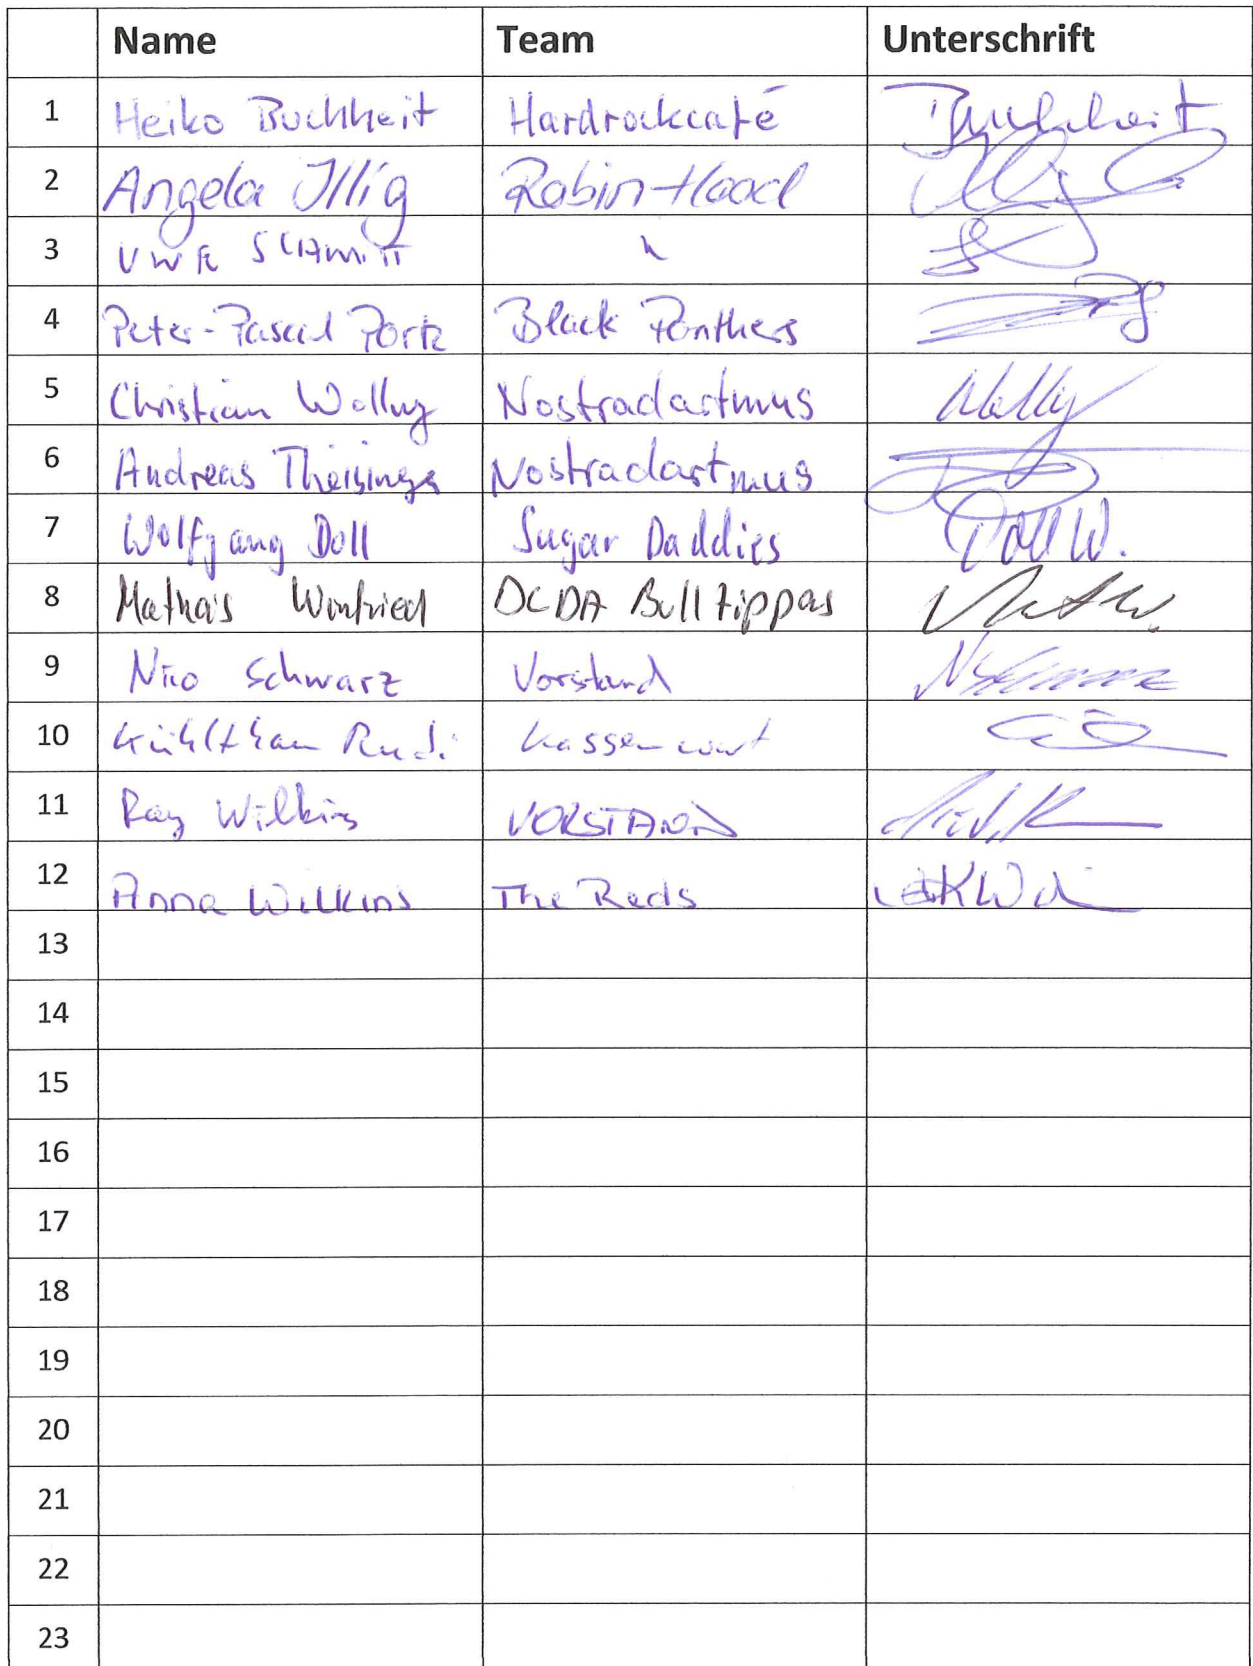 Name Team Unterschrift
1 Heiko Buchheit Hardrockcafé Buchheit
2 Angela Illig Robin-Hood
3 UWE SCHMITT "
4 Peter-Pascal Portz Black Panthers
5 Christian Wallny Nostradartmus
6 Andreas Theisinger Nostradartmus
7 Wolfgang Doll Sugar Daddies Doll W.
8 Winfried DCDA
9 Nico Schwarz Vorstand
10 Rudi Kassenwart
11 Ray Wilkins VORSTAND
12 Anna Wilkins The Reds
13
14
15
16
17
18
19
20
21
22
23